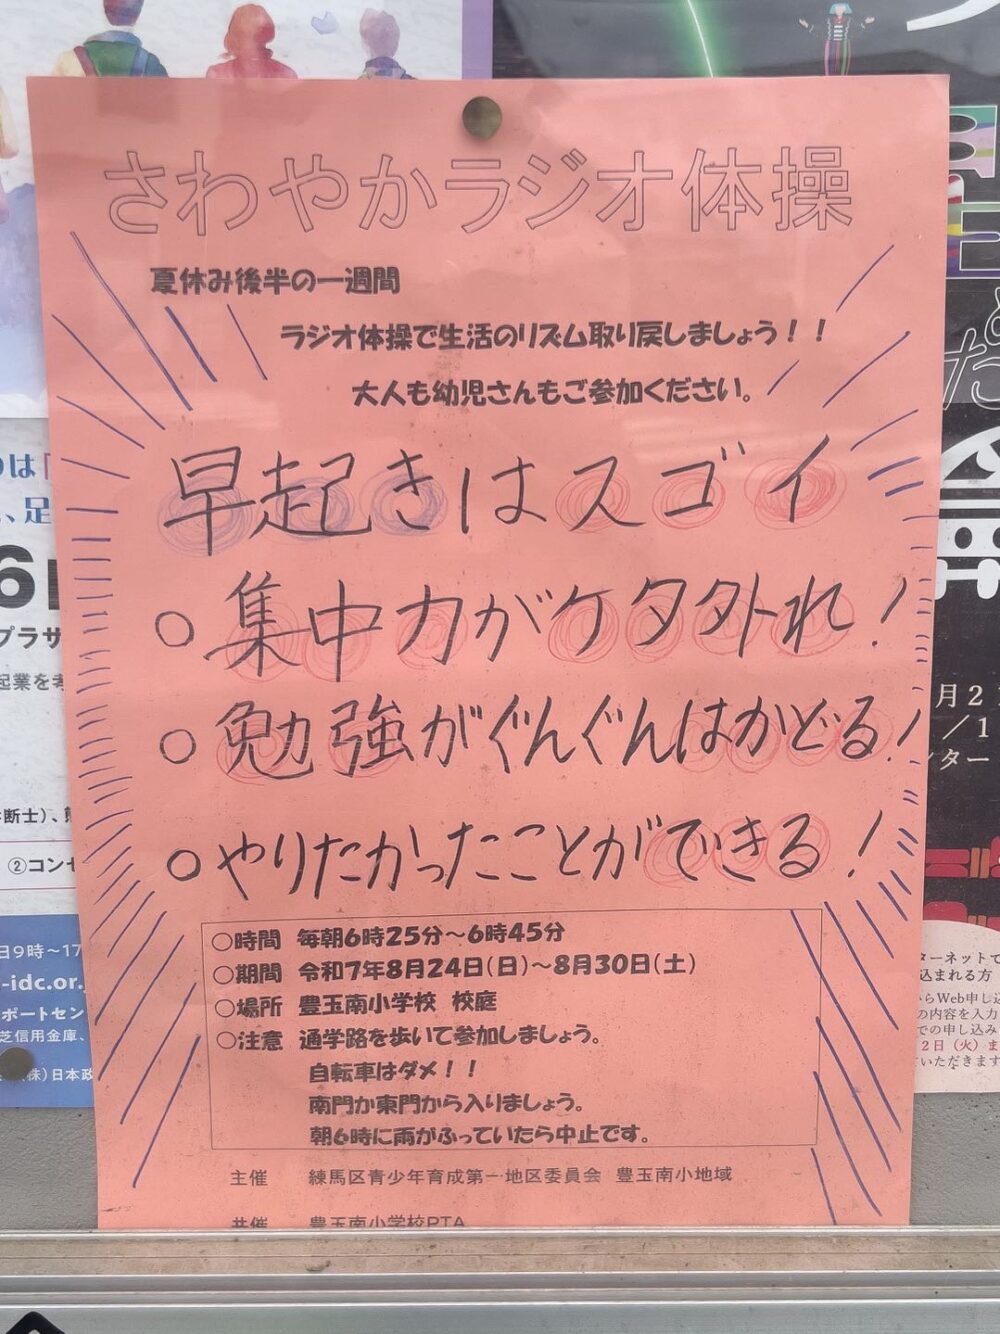 さわやかラジオ体操
夏休み後半の一週間
ラジオ体操で生活のリズム取り戻しましょう！！
大人も幼児さんもご参加ください。
早起きはスゴイ
○集中力がケタ外れ!
○勉強がぐんぐんはかどる!
○やりたかったことができる!
○時間 毎朝6時25分～6時45分
○期間 令和7年8月24日(日)～8月30日(土)
○場所 豊玉南小学校 校庭
○注意 通学路を歩いて参加しましょう。
自転車はダメ！！
南門か東門から入りましょう。
朝6時に雨がふっていたら中止です。
主催 練馬区青少年育成第一地区委員会 豊玉南小地域
共催 豊玉南小学校PTA
のは
足
プラサ
起業を考
断士)、
②コンセ
日9時～17
-idc.or.
ポートセン
芝信用金庫、
(株)日本政
月2
/1
ンター
ターネットで
込まれる方
らWeb申し込
の内容を入力
での申し込み
2日(火)ま
いただきます